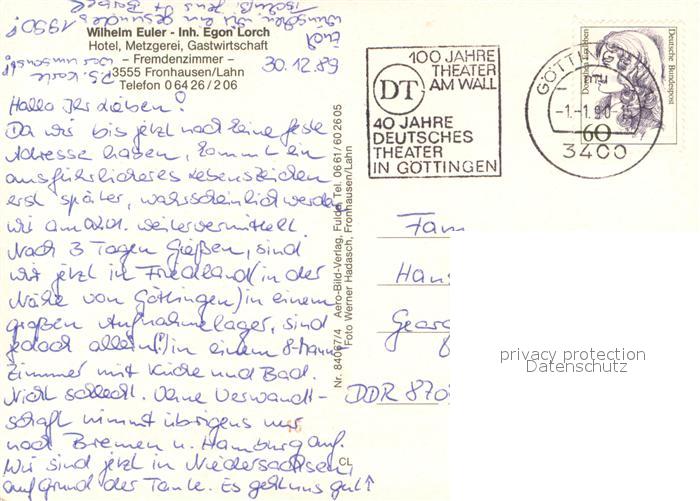 Wilhelm Euler - Inh. Egon Lorch
Hotel, Metzgerei, Gastwirtschaft
– Fremdenzimmer –
3555 Fronhausen/Lahn
Telefon 0 64 26 / 2 06
30.12.89
Hallo Ihr Lieben!
Da wir bis jetzt noch keine feste
Adresse haben, kommt ein
ausführlicheres Lebenszeichen
erst später, wahrscheinlich werden
wir am 02.01. weitervermittelt.
Nach 3 Tagen Gießen, sind
wir jetzt in Friedland (in der
Nähe von Göttingen) in einem
großen Aufnahmelager, sind
jedoch allein(!) in einem 8-Mann-
Zimmer mit Küche und Bad.
Nicht schlecht. Ohne Verwandt-
schaft nimmt übrigens nur
noch Bremen u. Hamburg auf.
Wir sind jetzt in Niedersachsen,
aufgrund der Tante. Es geht uns gut↑
Euch
wünschen wir ein gesundes
1990!
P.S. Karte
war umsonst!
Nr. 84067/4 Aero-Bild-Verlag, Fulda, Tel. 06 61 / 60 26 05
Foto Werner Hadasch, Fronhausen/Lahn
CL
100 JAHRE
THEATER
AM WALL
DT
40 JAHRE
DEUTSCHES
THEATER
IN GÖTTINGEN
GÖTTINGEN
mu
-1.-1.90-15
3400
60
Deutsche Bundespost
Fam
Han
Georg
DDR 870
privacy protection
Datenschutz